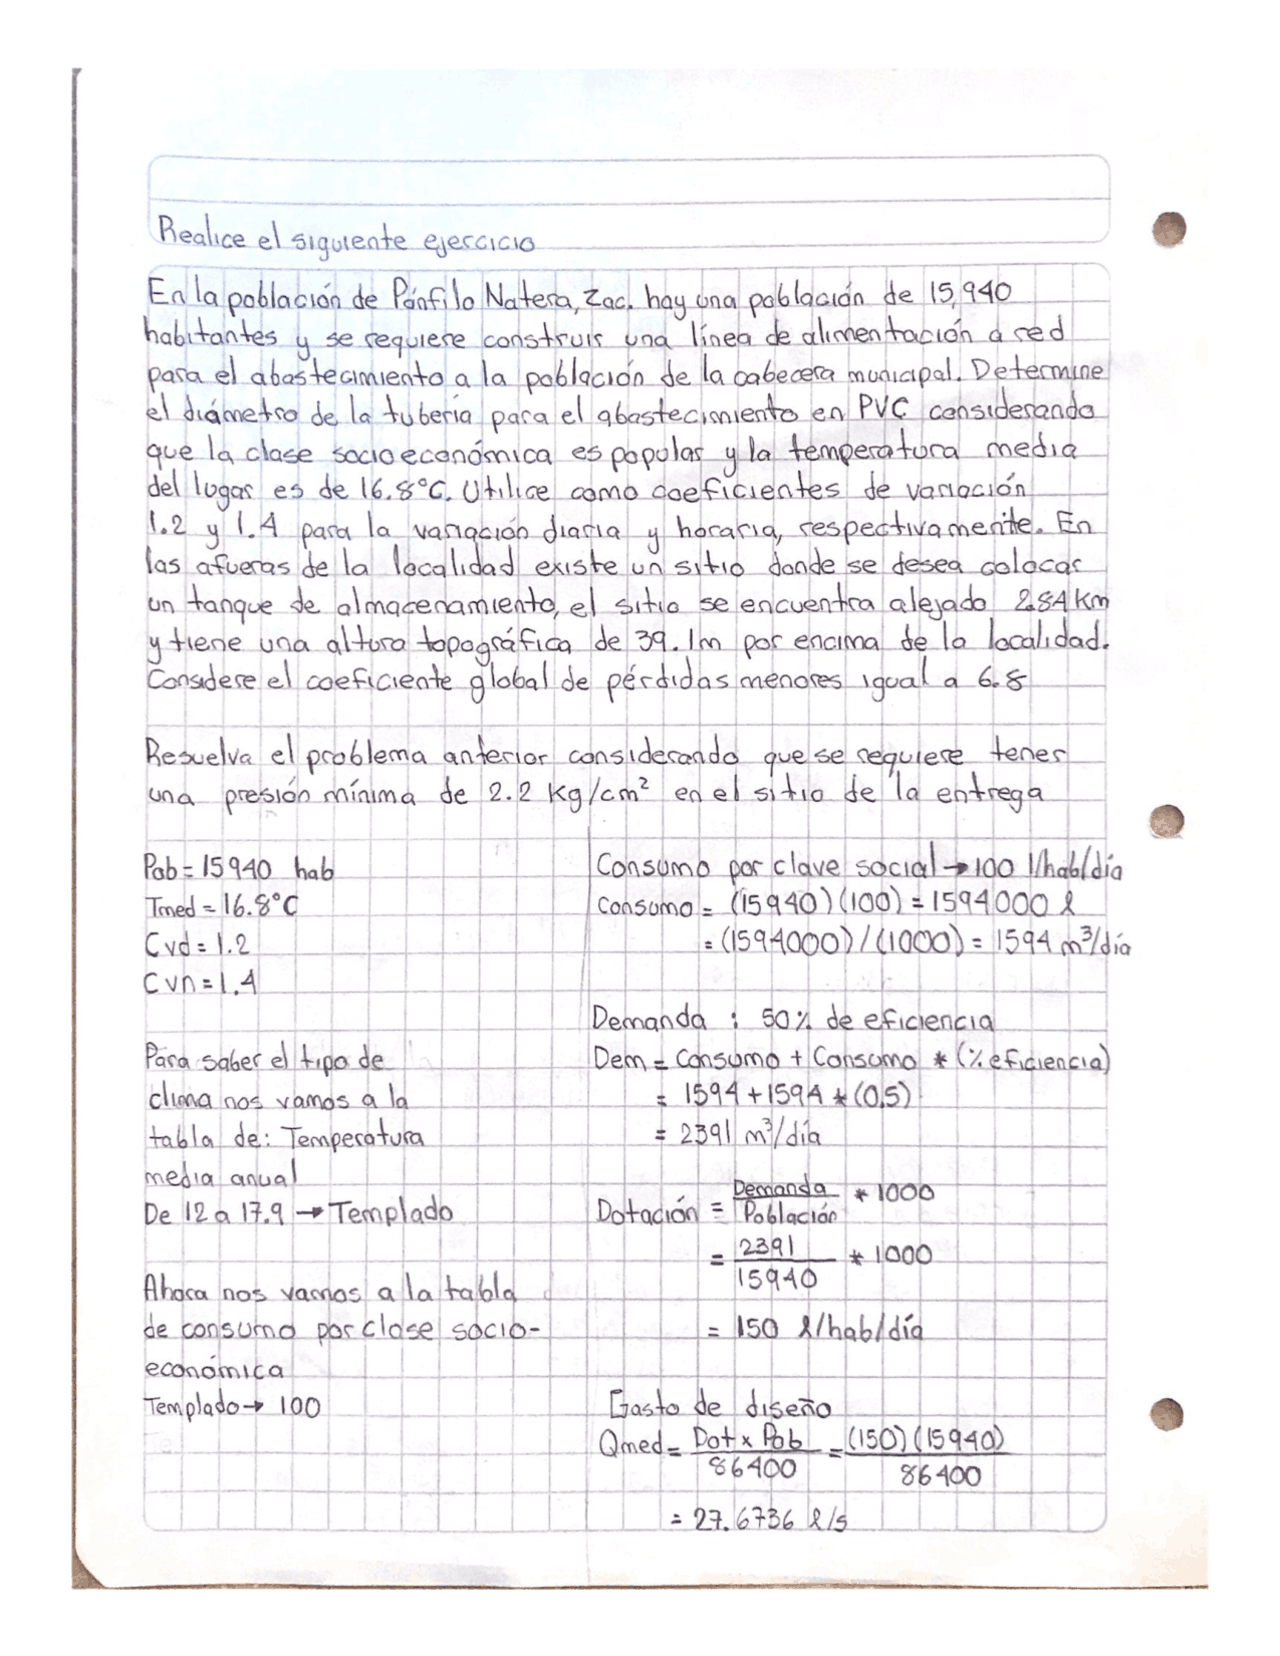 Realice el siguiente ejercicio
En la población de Pánfilo Natera, Zac. hay una población de 15,940
habitantes y se requiere construir una línea de alimentación a red
para el abastecimiento a la población de la cabecera municipal. Determine
el diámetro de la tubería para el abastecimiento en PVC considerando
que la clase socioeconómica es popular y la temperatura media
del lugar es de 16.8°C. Utilice como coeficientes de variación
1.2 y 1.4 para la variación diaria y horaria, respectivamente. En
las afueras de la localidad existe un sitio donde se desea colocar
un tanque de almacenamiento, el sitio se encuentra alejado 2.84 Km
y tiene una altura topográfica de 39.1m por encima de la localidad.
Considere el coeficiente global de pérdidas menores igual a 6.8
Resuelva el problema anterior considerando que se requiere tener
una presión mínima de 2.2 Kg/cm² en el sitio de la entrega
Pob = 15940 hab
Tmed = 16.8°C
Cvd = 1.2
Cvn = 1.4
Para saber el tipo de
clima nos vamos a la
tabla de: Temperatura
media anual
De 12 a 17.9 → Templado
Ahora nos vamos a la tabla
de consumo por clase socio-
económica
Templado → 100
Consumo por clave social → 100 l/hab/día
Consumo = (15940)(100) = 1594000 l
= (1594000)/(1000) = 1594 m³/día
Demanda : 50% de eficiencia
Dem = Consumo + Consumo * (% eficiencia)
= 1594 + 1594 * (0.5)
= 2391 m³/día
Dotación = Demanda / Población * 1000
= 2391 / 15940 * 1000
= 150 l/hab/día
Gasto de diseño
Qmed = Dot x Pob / 86400 = (150)(15940) / 86400
= 27.6736 l/s